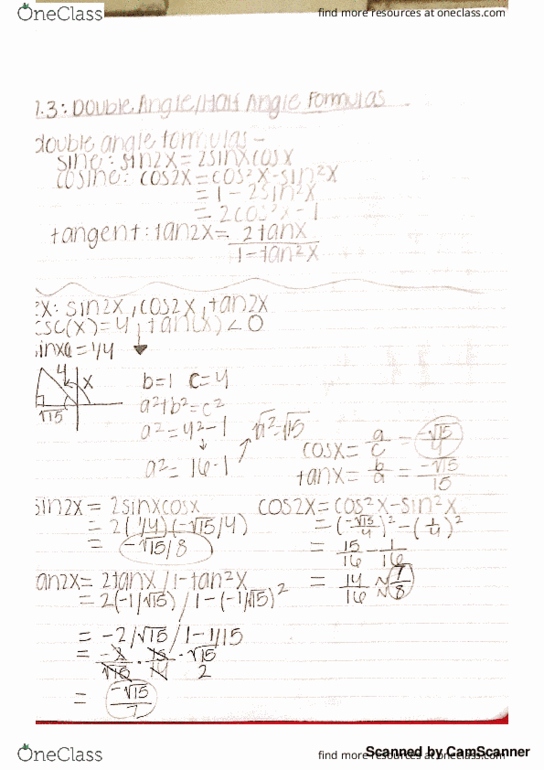 OneClass
find more resources at oneclass.com
7.3: Double Angle/Half Angle Formulas
double angle formulas -
sine: sin2x = 2sinxcosx
cosine: cos2x = cos²x - sin²x
= 1 - 2sin²x
= 2cos²x - 1
tangent: tan2x = 2tanx
1 - tan²x
ex: sin2x, cos2x, tan2x
csc(x) = 4, tan(x) < 0
= 1/4
4 x
√15
b=1 c=4
a²+b²=c²
a² = 4²-1
a² = 16-1
√a² = √15
cosx = a/c = -√15/4
tanx = b/a = -√15/15
sin2x = 2sinxcosx
= 2(1/4)(-√15/4)
= -√15/8
cos2x = cos²x - sin²x
= (-√15/4)² - (1/4)²
= 15/16 - 1/16
= 14/16 ≈ 7/8
tan2x = 2tanx / 1-tan²x
= 2(-1/√15) / 1-(-1/√15)²
= -2/√15 / 1-1/15
= -2/√15 · 15/14 ·
= -√15/7
OneClass
find more resources at oneclass.com
Scanned by CamScanner